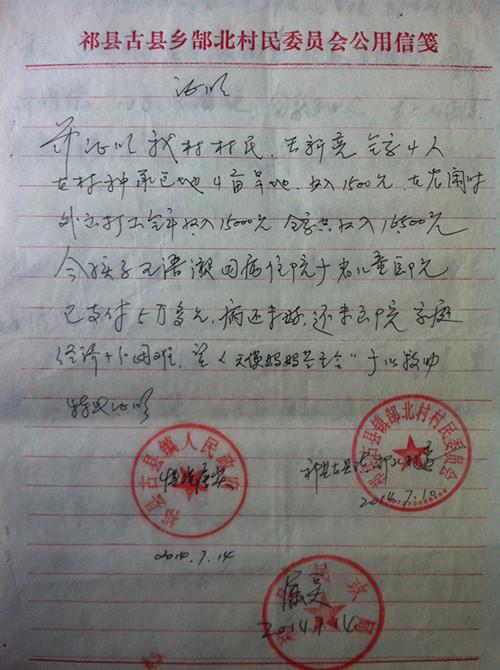 祁县古县乡郜北村民委员会公用信笺
证明
兹证明我村村民，王新亮全家4人
在村种承包地4亩旱地，收入1500元，在农闲时
外出打工全年收入15000元 全家共收入16500元
今孩子王语凝因病住院于省儿童医院
已支付5万多元，病还未好，还未出院 家庭
经济十分困难，望《天使妈妈基金会"予以救助
特此证明
祁县古县镇人民政府
情况属实
2014.7.14
祁县古县镇郜北村村民委员会
祁县古县镇郜北村委
2014.7.10
民政局
属实
2014.7.14